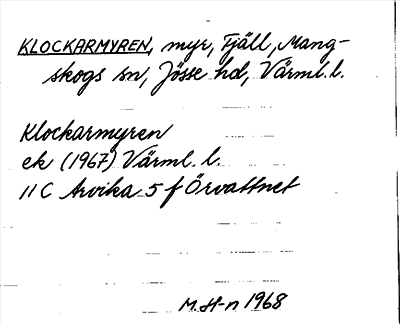 KLOCKARMYREN, myr, Fjäll, Mang-
skogs sn, Jösse hd, Värml. l.
Klockarmyren
ek (1967) Värml. l.
11 C Arvika 5 f Örvattnet
M. H-n 1968